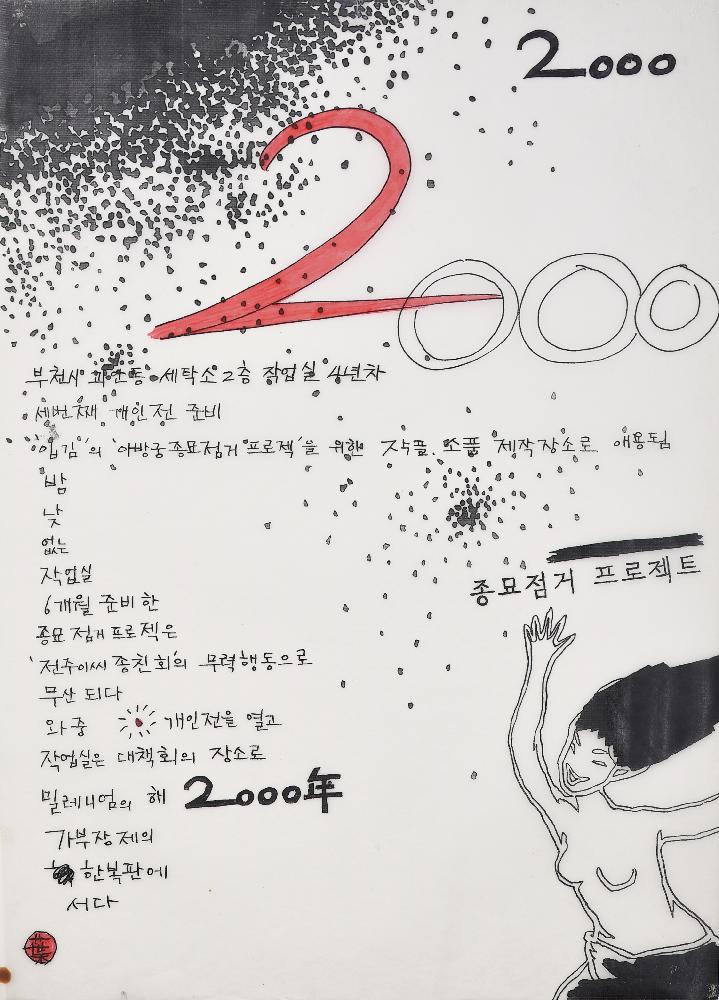 2000
2000
부천시 괴안동 세탁소 2층 작업실 4년차
세번째 개인전 준비
"입김"의 '아방궁종묘점거 프로젝'을 위한 작품. 소품 제작장소로 애용됨
밤
낮
없는
작업실
6개월 준비한
종묘점거프로젝은
'전주이씨 종친회'의 무력행동으로
무산 되다
와중 개인전을 열고
작업실은 대책회의 장소로
밀레니엄의 해 2000年
가부장제의
한복판에
서다
종묘점거 프로젝트